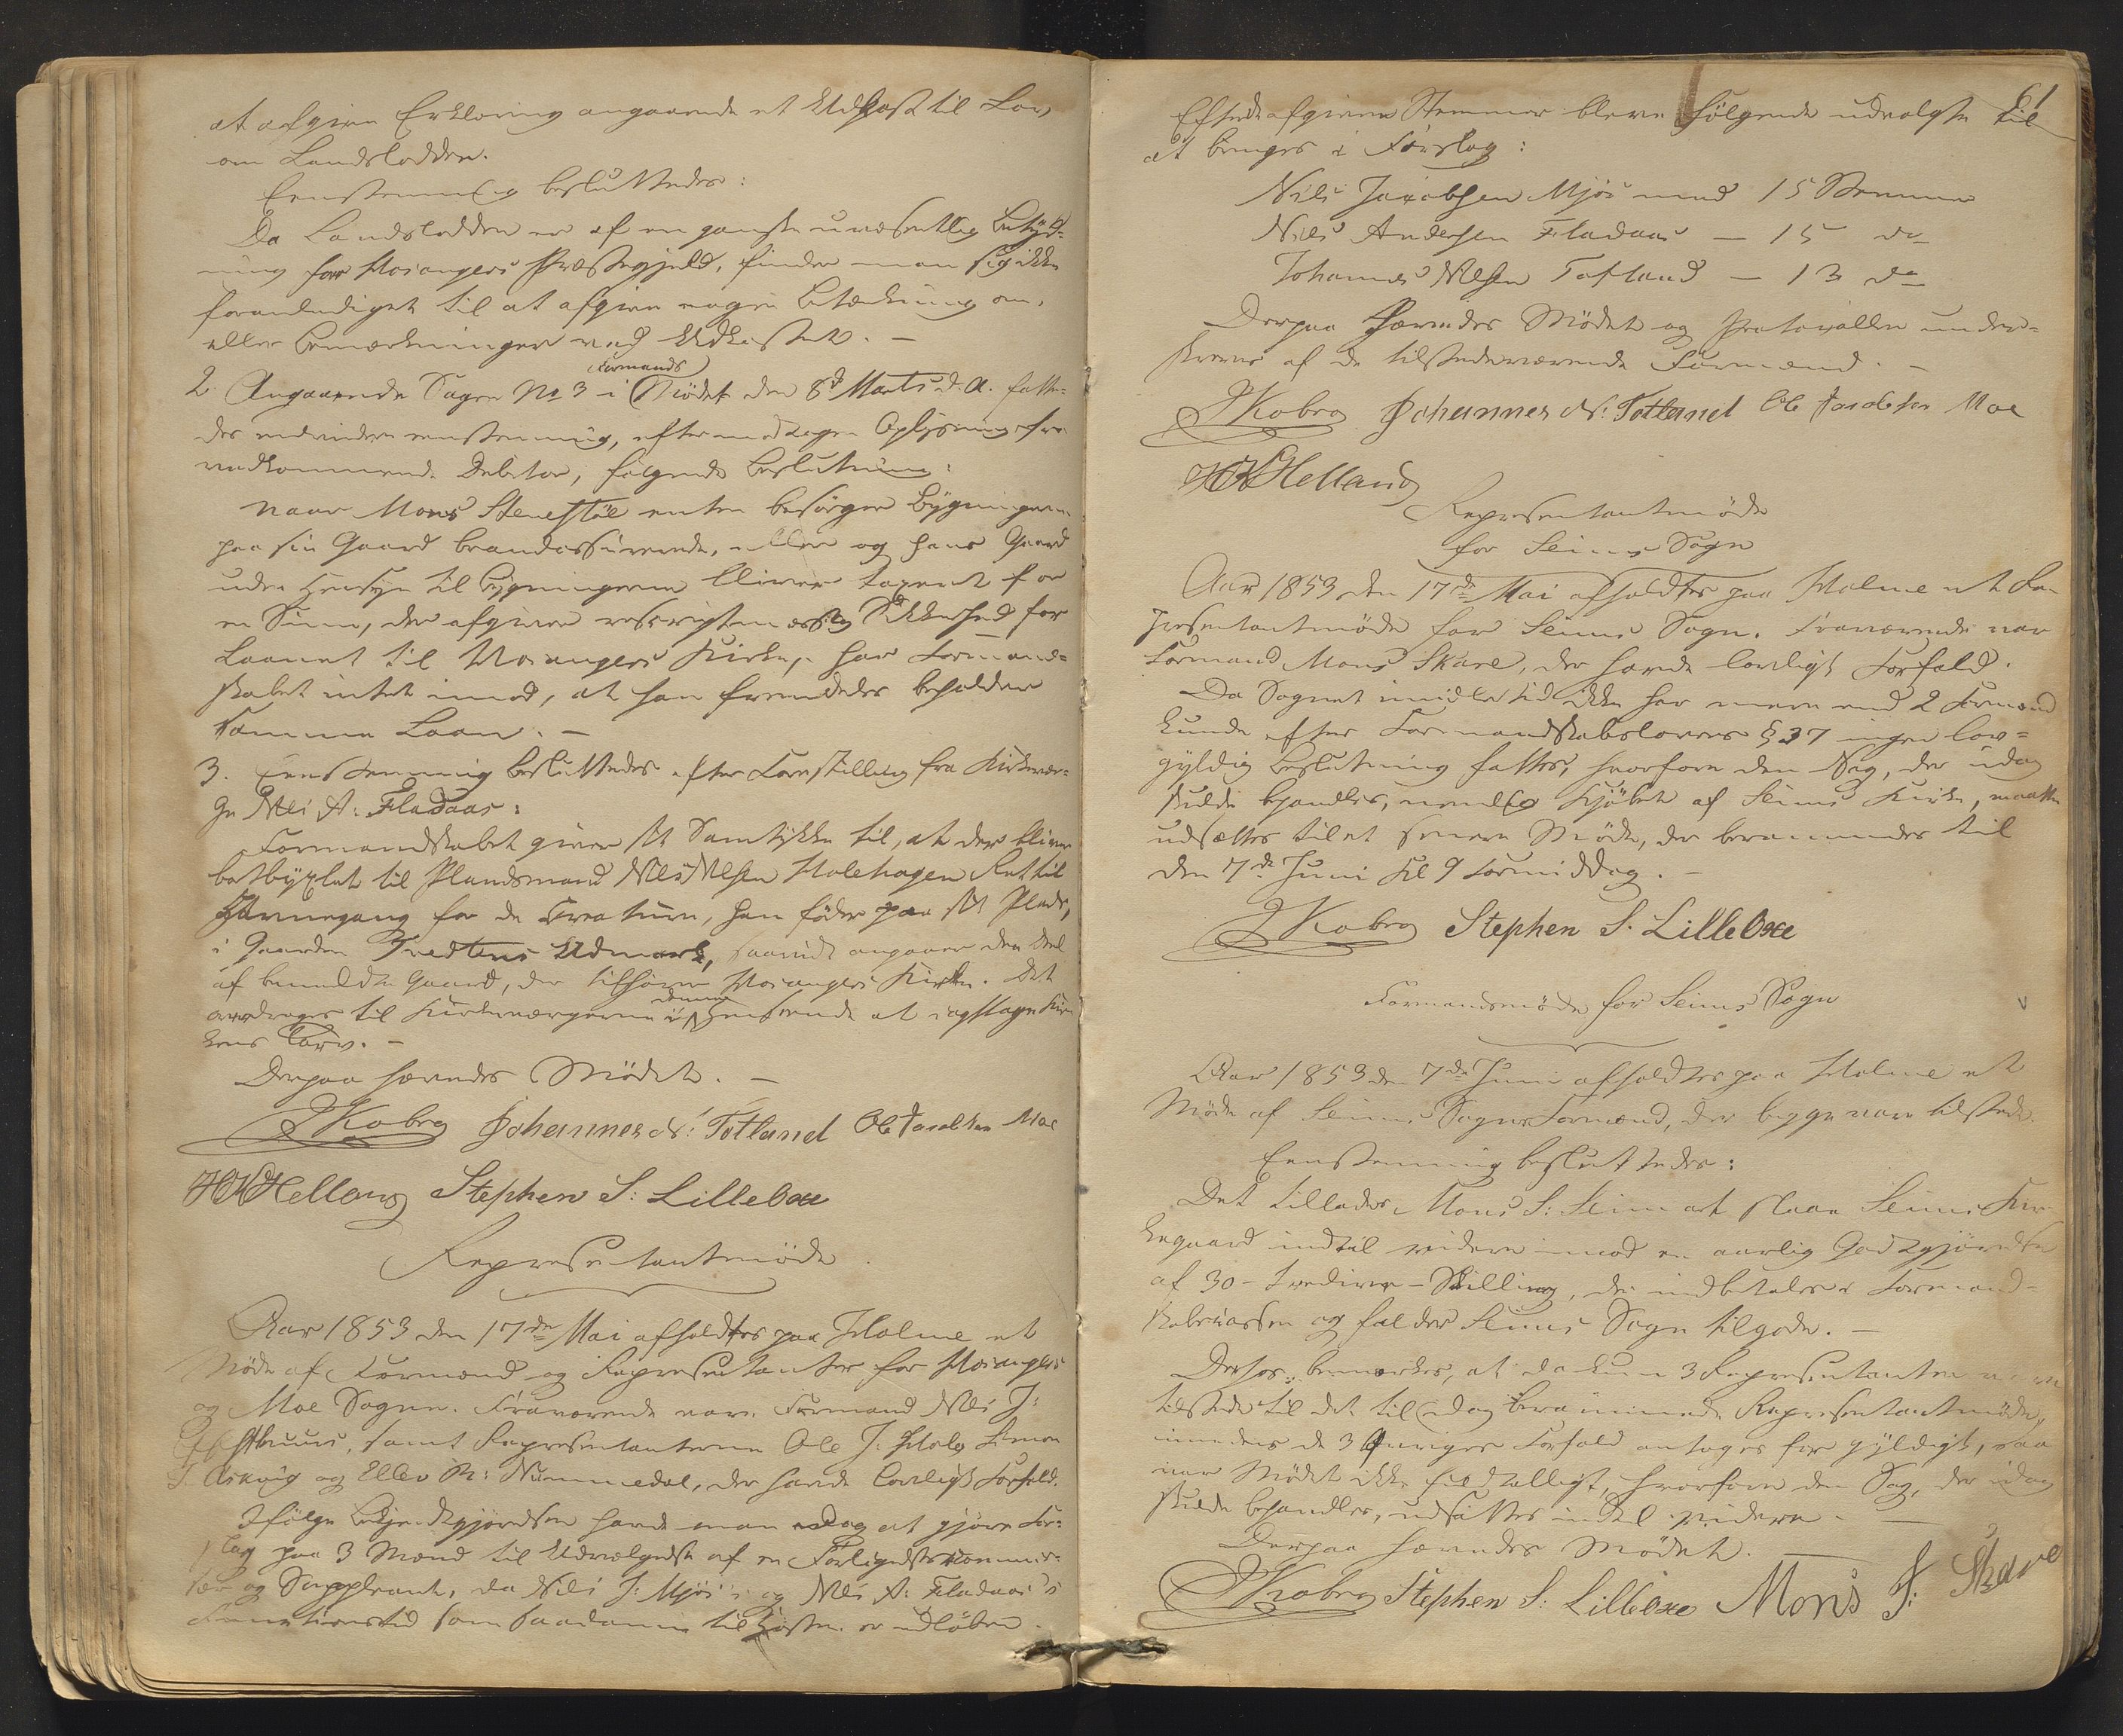 at afgive Erklæring angaaende et Udkast til Lov,
om Landslodden.
Eenstemmig besluttedes:
Da Landslodden er af en ganske uvæsentlig Betyd-
ning for Hosangers Præstegjeld, finder man sig ikke
foranlediget til at afgive nogen Betænkning om,
eller Bemærkninger ved Udkastet. –
2. Angaaende Sagen No 3 i Formands Mødet den 8de Marts d. A. fatte-
des endvidere eenstemmig, efter modtagen Oplysning fra
vedkommende Debitor, følgende Beslutning:
Naar Mons Stenestøl enten besørger Bygningerne
paa sin Gaard brandassurerede, eller og hans Gaard
uden Hensyn til Bygningerne bliver taxeret for
en Sum, der afgiver Sikkerhed for
Laanet til Hosangers Kirke, har Formand-
skabet intet imod, at han fremdeles beholder
samme Laan. –
3. Eenstemmig besluttedes efter Forestilling fra Kirkevær-
ge Nils A. Fladaas:
Formandskabet giver sit Samtykke til, at der bliver
bortbyxlet til Plandsmand Nils Nilsen Holehagen Ret til
Havnegang for de Creature, han føder paa sit Plads,
i Gaarden Tvedtens Udmark, saavidt angaaer den Deel
af bemeldte Gaard, der tilhører Hosangers Kirke. Det
overdrages til Kirkeværgerne i denne Henseende at iagttage Kir-
kens Tarv. –
Derpaa hævedes Mødet. –
J Kobro Johannes N: Totland Ole Jacobsen Moe
H Helland Stephen S: Lilleboe
Representantmøde
Aar 1853 den 17de Mai afholdtes paa Holme et
Møde af Formænd og Representanter for Hosangers
og Moe Sogne. Fraværende vare Formand Nils J:
samt Representanterne Ole J: Simon
J. Askvig og Ellev M: Nummedal, der havde lovligt Forfald.
Ifølge Bekjendtgjørelsen havde man idag at gjøre For-
slag paa 3 Mænd til Udvælgelse af en Forligelsescommis-
sær og Suppleant, da Nils J. Mjøs's og Nils A: Fladaas's
Functionstid som saadanne til Høsten er udløben.
61
Efter de afgivne Stemmer bleve følgende udvalgte til
at bringes i Forslag:
Nils Jacobsen Mjøs med 15 Stemmer
Niels Andersen Fladaas – 15 do
Johannes Nilsen Totland – 13 do
Derpaa hævedes Mødet og Protocollen under-
skreves af de tilstedeværende Formænd. –
J Kobro Johannes N: Totland Ole Jacobsen Moe
H Helland
Representantmøde
for Seims Sogn
Aar 1853 den 17de Mai afholdtes paa Holme et Re-
presentantmøde for Seims Sogn. Fraværende var
Formand Mons Skare, der havde lovligt Forfald.
Da Sognet imidlertid ikke har mere end 2 Formænd
kunde efter Formandskabslovens § 37 ingen lov-
gyldig Beslutning fattes, hvorfore den Sag, der idag
skulde behandles, nemlig Kjøbet af Seims Kirke, maatte
udsættes til et senere Møde, der berammedes til
den 7de Juni Kl 9 Formiddag. –
J Kobro Stephen S. Lilleboe
Formandsmøde for Seims Sogn
Aar 1853 den 7de Juni afholdtes paa Holme et
Møde af Seims Sogns Formænd, der begge vare tilstede.
Eenstemmig besluttedes:
Det tillades Mons S: Seim at slaae Seims Kir-
kegaard indtil videre imod en aarlig Godtgjørelse
af 30 – tredive – Skilling, der indbetales i Formand-
skabscassen og falder Seims Sogn tilgode. –
Derhos bemærkes, at da kun 3 Representanter vare
tilstede til det til idag berammede Representantmøde,
imedens de 3 øvriges Forfald antoges for gyldigt, saa
var Mødet ikke fuldtalligt, hvorfore den Sag, der idag
skulde behandles, udsættes indtil videre. –
Derpaa hævedes Mødet.
J Kobro Stephen S: Lilleboe Mons J: Skare